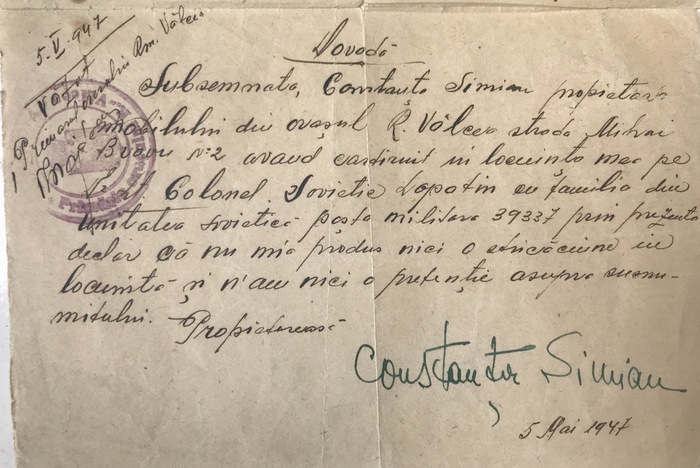 5.V.947
Văzut
Primarul orașului Rm. Vâlcea
Dovadă
Subsemnata, Constanța Simian propietara
imobilului din orașul R. Vâlcea strada Mihai
Bravu No 2 avand cartiruit in locuinta mea pe
Lt Colonel Sovietic Lopatin cu familia din
unitatea sovietică posta militara 39337 prin prezenta
declar că nu mia produs nici o stricăciune in
locuintă și n'am nici o pretenție asupra susnu-
mitului. Propietareasă
Constanța Simian
5 Mai 1947